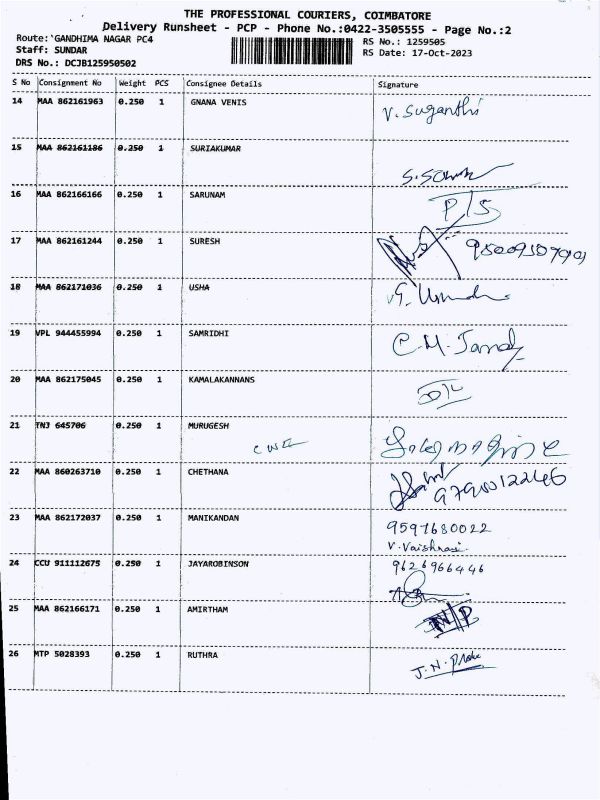 THE PROFESSIONAL COURIERS, COIMBATORE
Delivery Runsheet - PCP - Phone No.:0422-3505555 - Page No.:2
Route:`GANDHIMA NAGAR PC4
RS No.: 1259505
Staff: SUNDAR
RS Date: 17-Oct-2023
DRS No.: DCJB125950502
S No Consignment No Weight PCS Consignee Details Signature
14 MAA 862161963 0.250 1 GNANA VENIS V. Suganthi
15 MAA 862161186 0.250 1 SURIAKUMAR
16 MAA 862166166 0.250 1 SARUNAM P/S
17 MAA 862161244 0.250 1 SURESH
18 MAA 862171036 0.250 1 USHA
19 VPL 944455994 0.250 1 SAMRIDHI
20 MAA 862175045 0.250 1 KAMALAKANNANS
21 TNJ 645706 0.250 1 MURUGESH
22 MAA 860263710 0.250 1 CHETHANA
23 MAA 862172037 0.250 1 MANIKANDAN 9597680022
24 CCU 911112675 0.250 1 JAYAROBINSON 9626966446
25 MAA 862166171 0.250 1 AMIRTHAM
26 MTP 5028393 0.250 1 RUTHRA